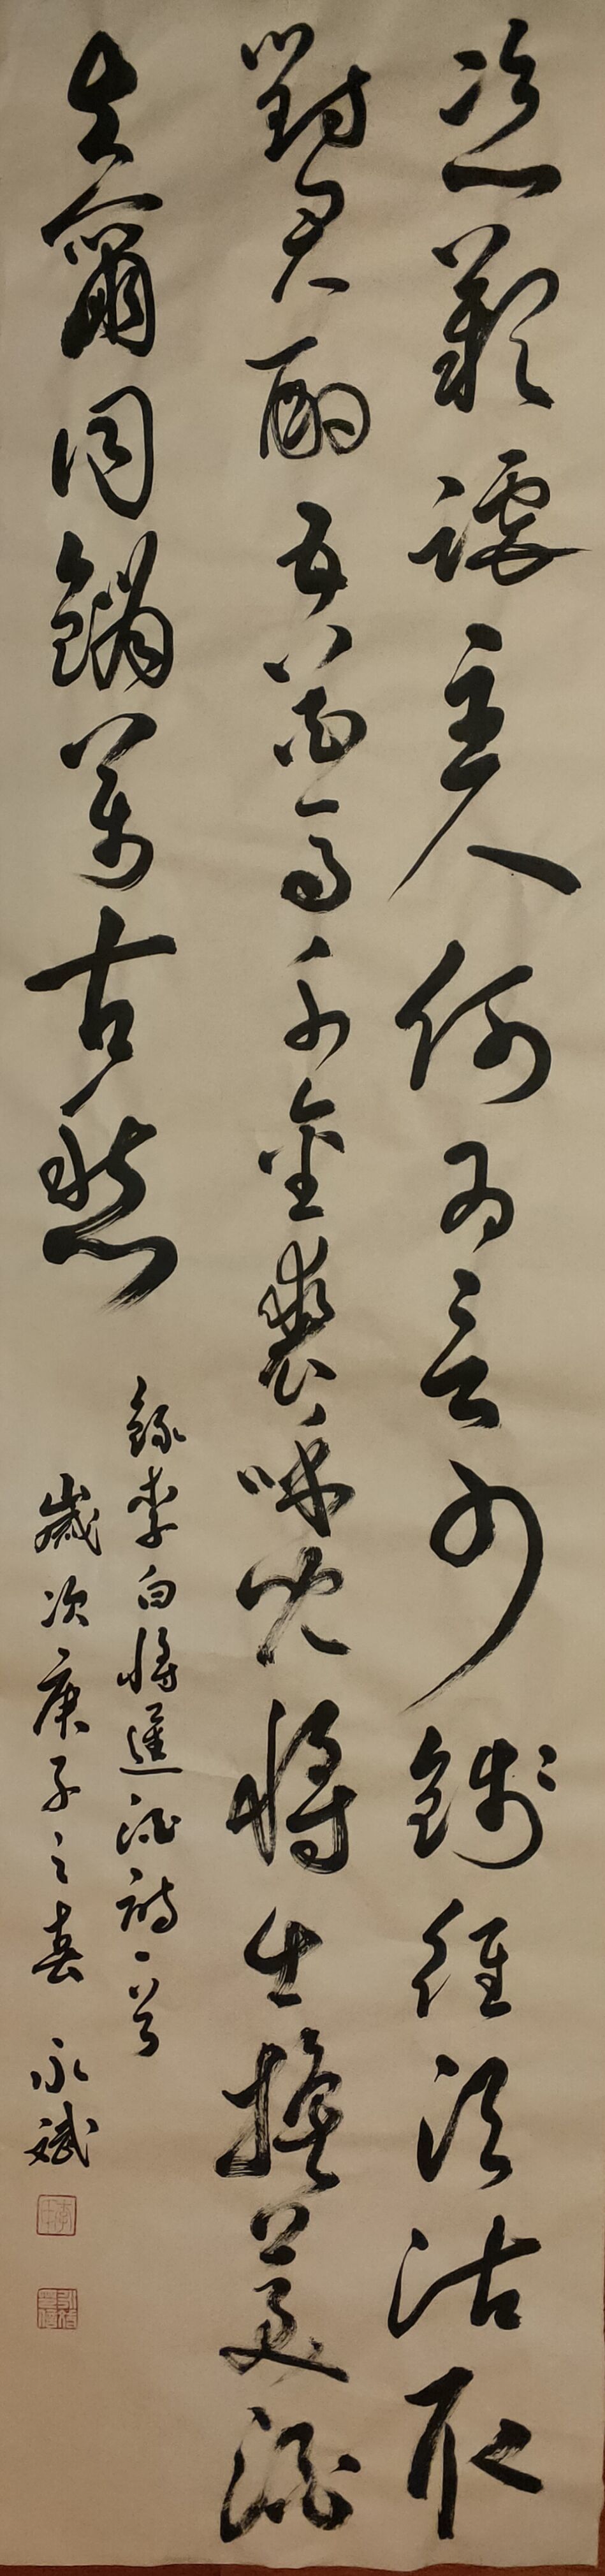 恣歡謔主人何為言少錢徑須沽取
對君酌五花馬千金裘呼兒將出換美酒
與爾同銷萬古愁
錄李白將進酒詩一首
歲次庚子之春 永斌